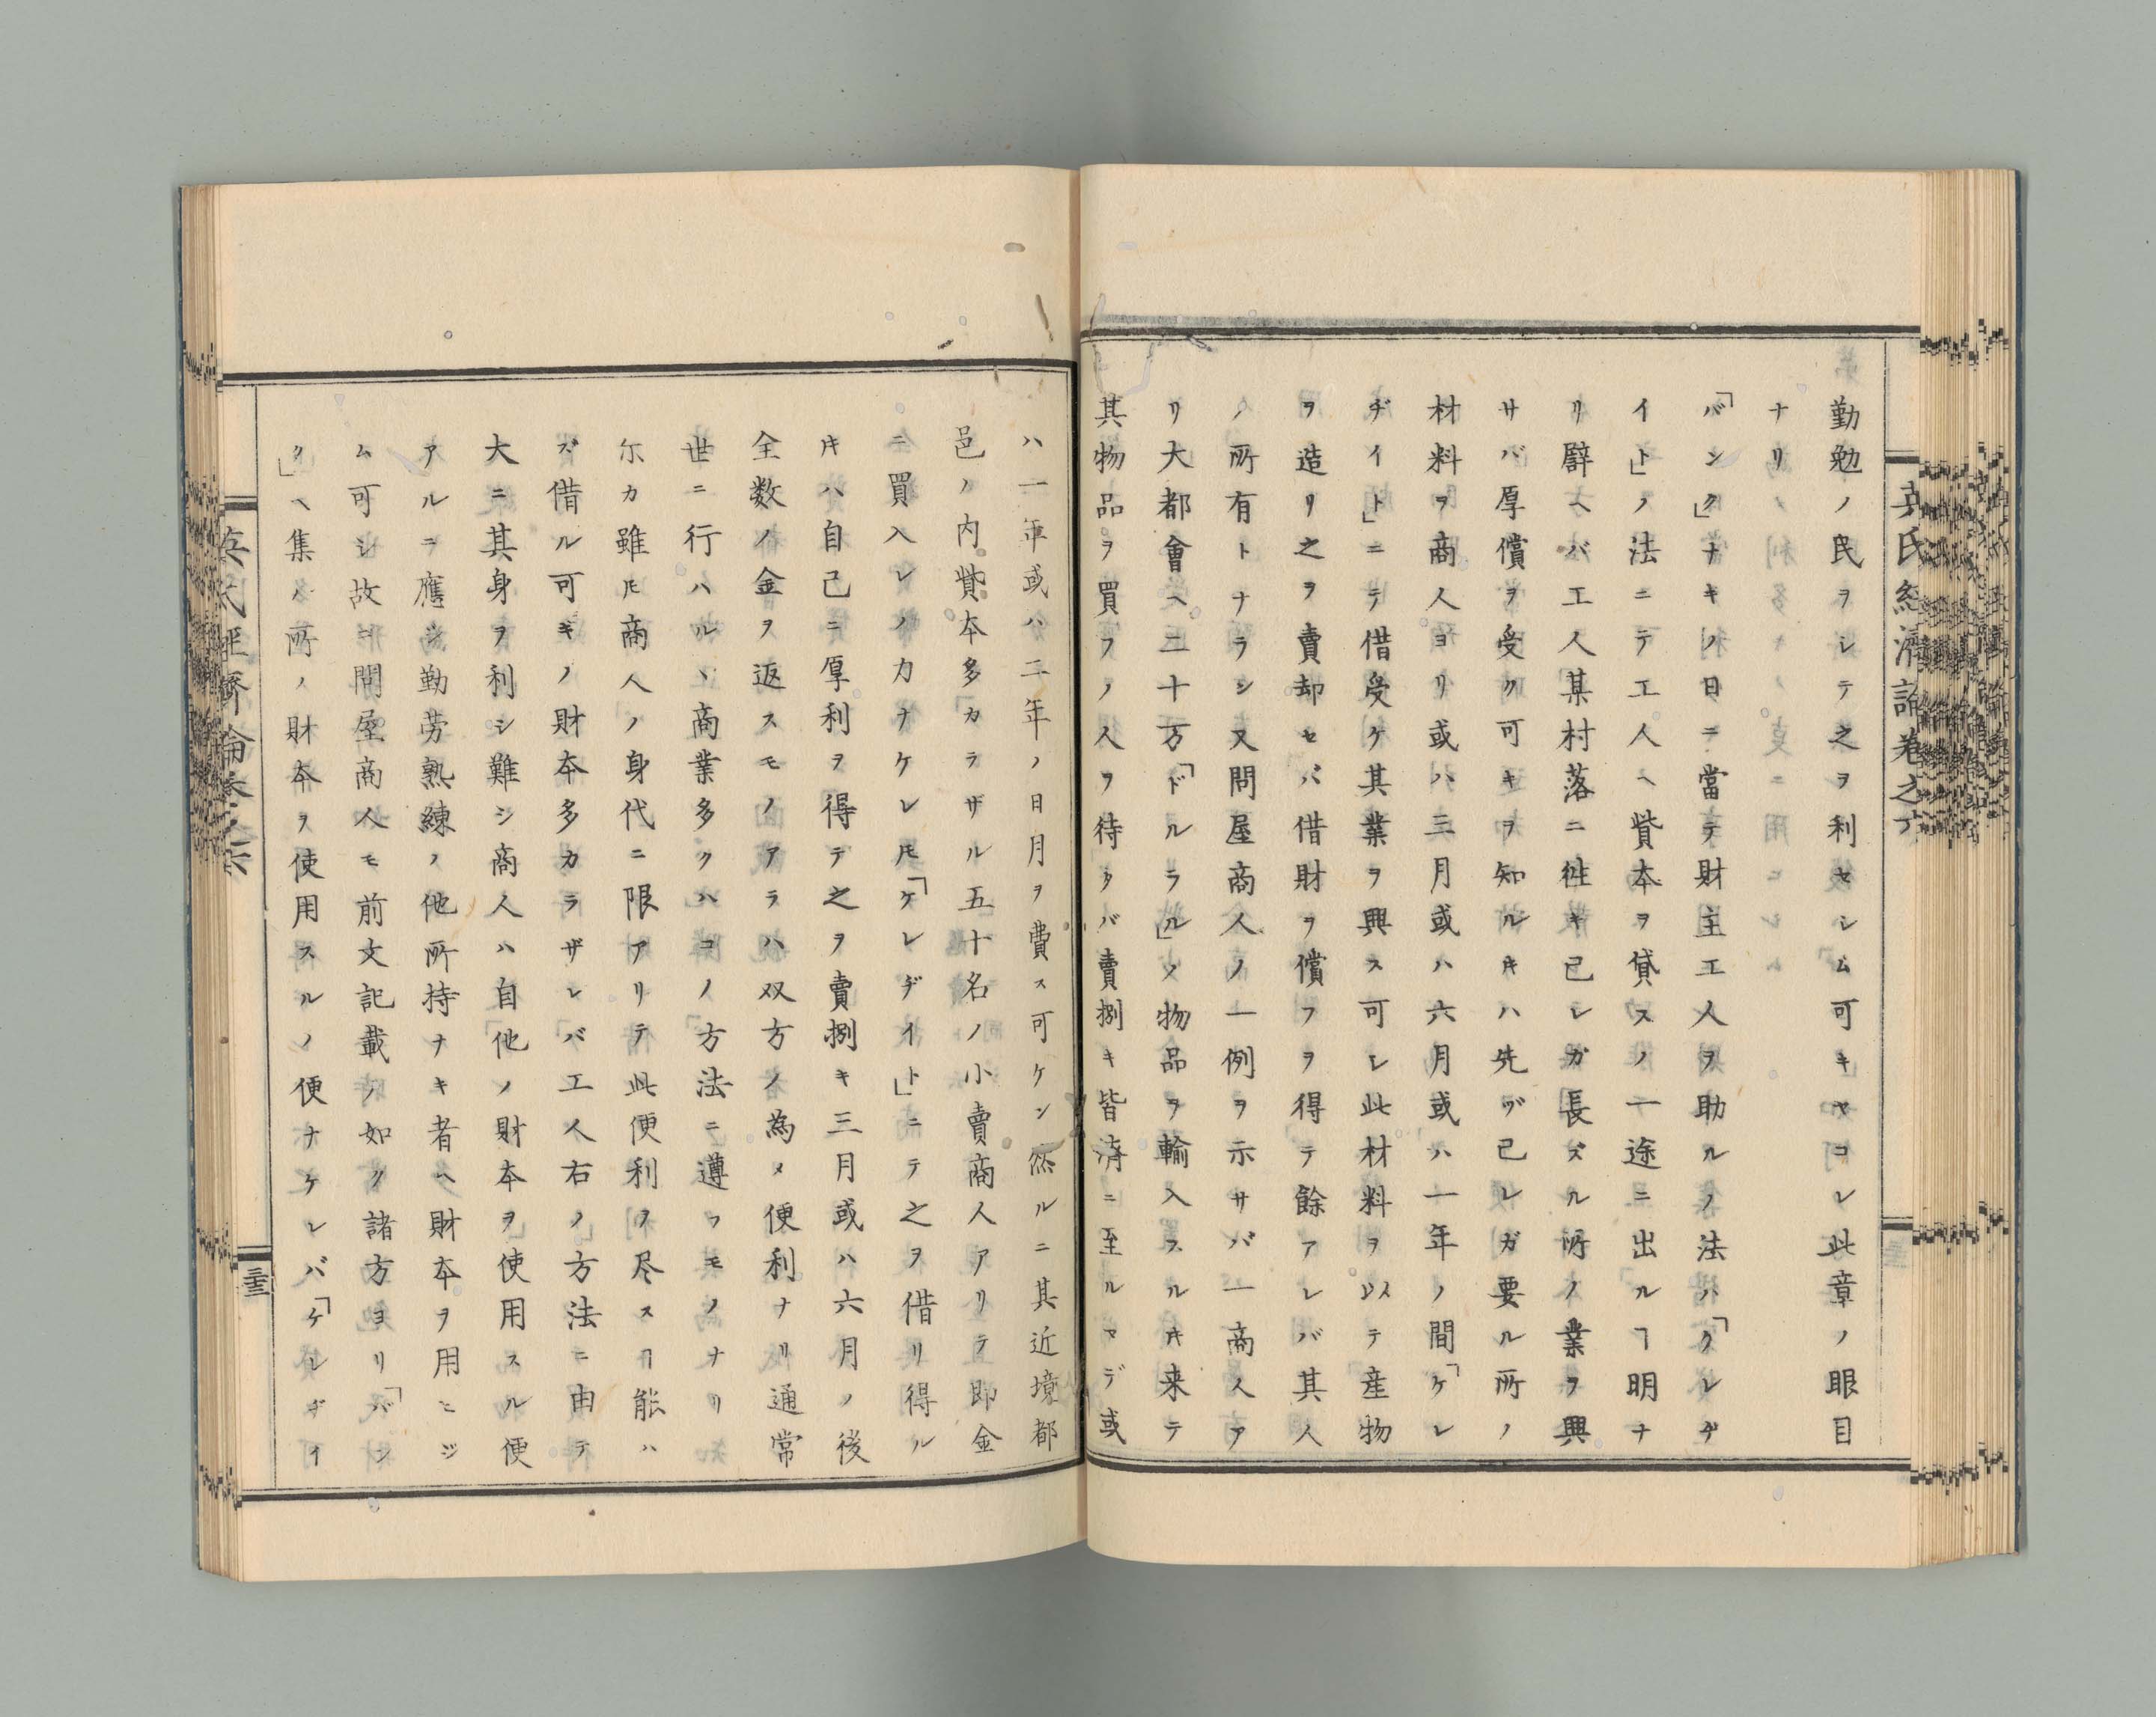 勤勉ノ民ヲシテ之ヲ利セシム可キヤコレ此章ノ眼目
ナリ
「バンク」ナキノ日ニ當テ財主工人ヲ助ルノ法ハ「クレヂ
イト」ノ法ニテ工人ヘ貲本ヲ貸スノ一途ニ出ルヿ明ナ
リ辟ヘバ工人某村落ニ徃キ己レガ長ズル所ノ業ヲ興
サバ厚償ヲ受ク可キヲ知ルキハ先ヅ己レガ要ル所ノ
材料ヲ商人ヨリ或ハ三月或ハ六月或ハ一年ノ間「ケレ
ヂイト」ニテ借受ケ其業ヲ興ス可シ此材料ヲ以テ産物
ヲ造リ之ヲ賣却セバ借財ヲ償フヲ得テ餘アレバ其人
ノ所有トナラン又問屋商人ノ一例ヲ示サバ一商人ア
リ大都會ヘ二十万「ドルラル」ノ物品ヲ輸入スルキ来テ
其物品ヲ買フノ人ヲ待タバ賣捌キ皆済ニ至ルマデ或
ハ一年或ハ二年ノ日月ヲ費ス可ケン然ルニ其近境都
邑ノ内貲本多カラザル五十名ノ小賣商人アリテ即金
ニ買入レノカナケレ𪜈「ケレヂイト」ニテ之ヲ借リ得ル
キハ自己ニ厚利ヲ得テ之ヲ賣捌キ三月或ハ六月ノ後
全数ノ金ヲ返スモノアラハ双方ノ為メ便利ナリ通常
世ニ行ハルヽ商業多クハコノ方法ニ遵フモノナリ
尓カ雖𪜈商人ノ身代ニ限アリテ此便利ヲ尽スヿ能ハ
ズ借ル可キノ財本多カラザレバ工人右ノ方法ニ由テ
大ニ其身ヲ利シ難シ商人ハ自他ノ財本ヲ使用スル便
アルニ應シ勤労熟練ノ他所持ナキ者ヘ財本ヲ用ヒシ
ム可シ故ニ問屋商人モ前文記載ノ如ク諸方ヨリ「バン
ク」ヘ集ル所ノ財本ヲ使用スルノ便ナケレバ「ケレヂイ
英氏經濟論卷之六
三十三